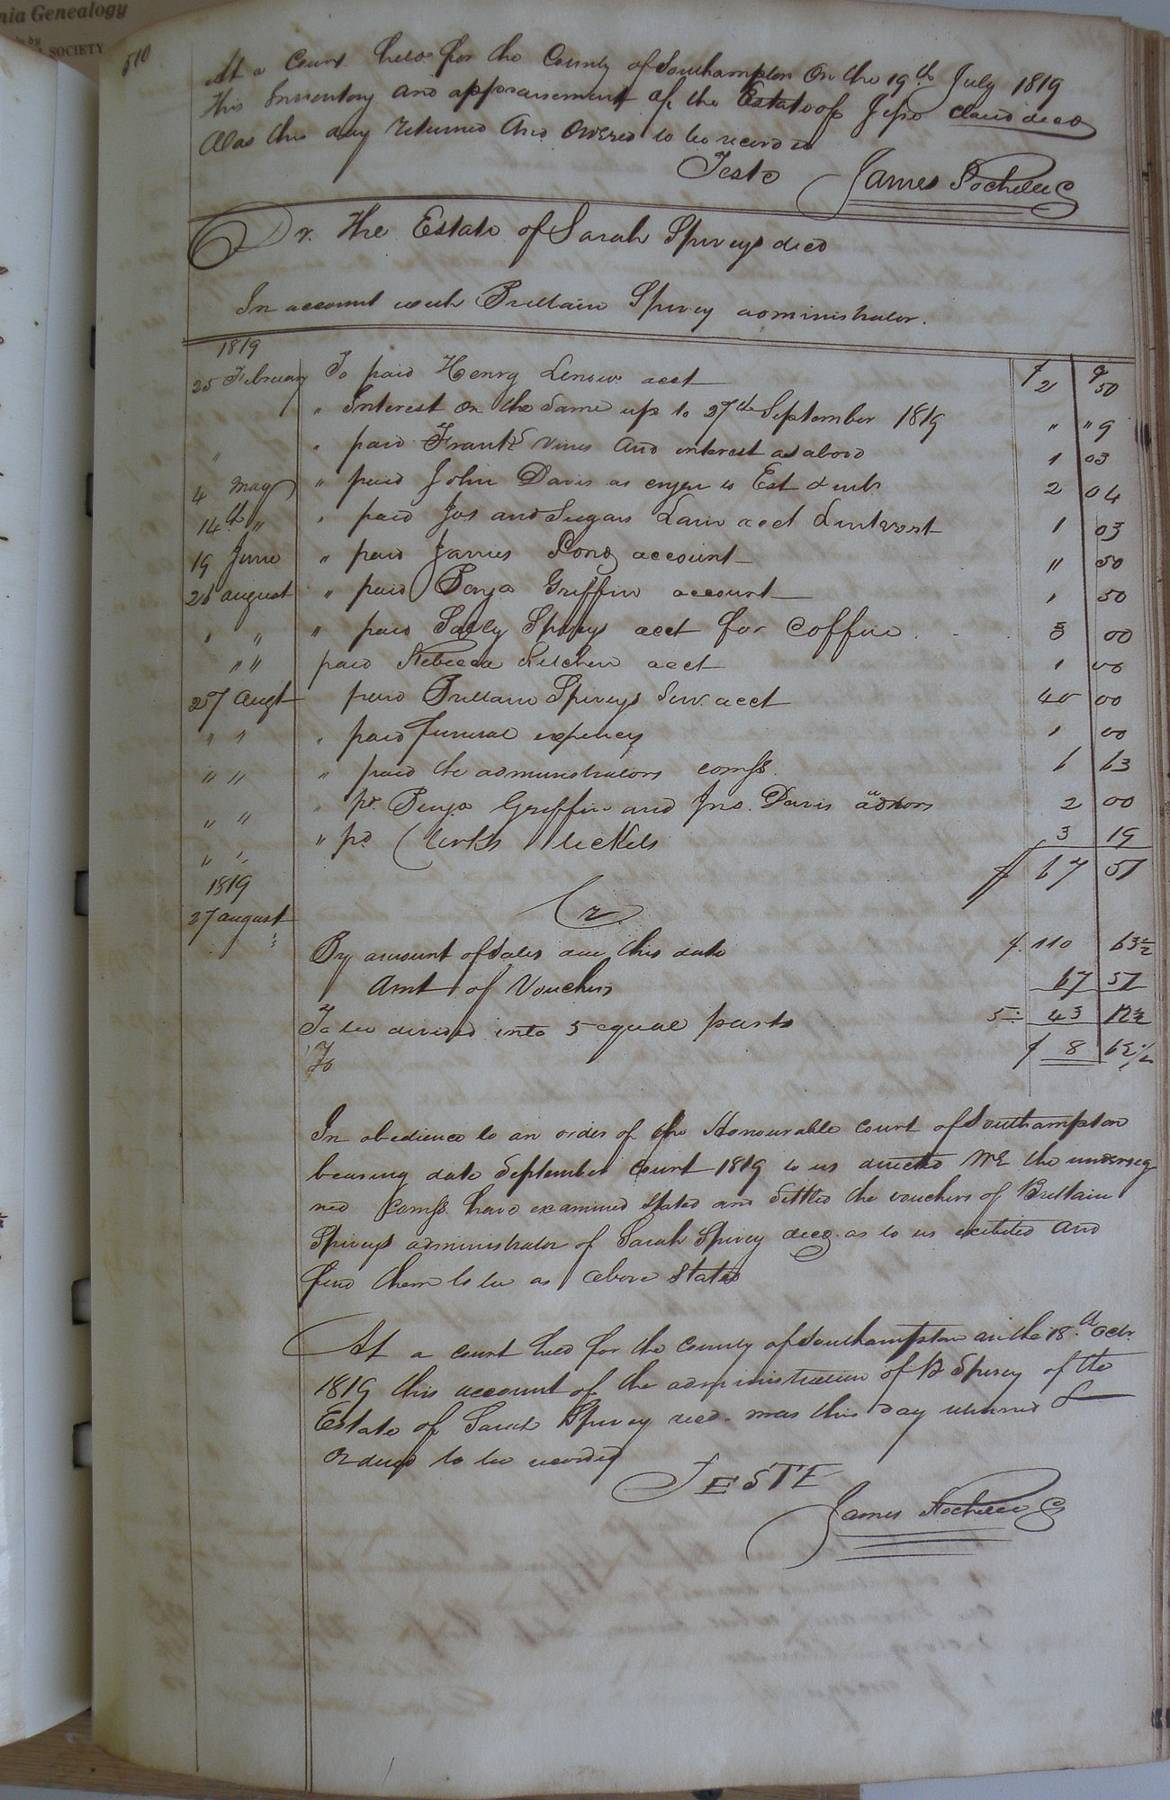 nia Genealogy
SOCIETY
510
At a Court held for the County of Southampton On the 19th July 1819
This Inventory and appraisement of the Estate of Jesse decd
Was this day returned And Ordered to be recorded
Teste James Rochelle C
Dr. The Estate of Sarah Spiveys decd
In account with Brittain Spivey administrator.
1819
25 February To paid Henry Lenows acct $ 2 50
" Interest On the Same up to 27th September 1819 " " 9
" " paid Frank Vines And interest as above 1 03
4 May " paid John Davis as to Est & 2 04
14th " " paid Jos and Lain acct & interest 1 03
19 June " paid James Pond account " 50
26 august " paid Benja Griffin account 1 50
" " " paid Sally Spiveys acct for Coffin 3 00
" " paid Rebecca Kitchen acct 1 00
27 Augt paid Brittain Spiveys acct 40 00
" " " paid funeral expences 1 00
" " " paid the administrators comss. 6 63
" " " pd. Benja Griffin and Jno. Davis 2 00
" " " pd Clerks tickets 3 19
1819 $ 67 51
27 august Cr
By amount of Sales due this date $ 110 63½
Amt of Vouchers 67 51
To be devided into 5 equal parts 5 43 12½
To $ 8 62½
In obedience to an order of the Honourable court of Southampton
bearing date September Court 1819 to us directed We the undersig
ned Comss. have examined Stated and Settled the vouchers of Brittain
Spiveys administrator of Sarah Spivey decd. as to us exibited And
find them to be as above Stated
At a court held for the county of Southampton on the 18th Octr.
1819 this account of the administration of B Spivey of the
Estate of Sarah Spivey decd. was this day returned &
Ordered to be recorded
TESTE
James Rochelle C